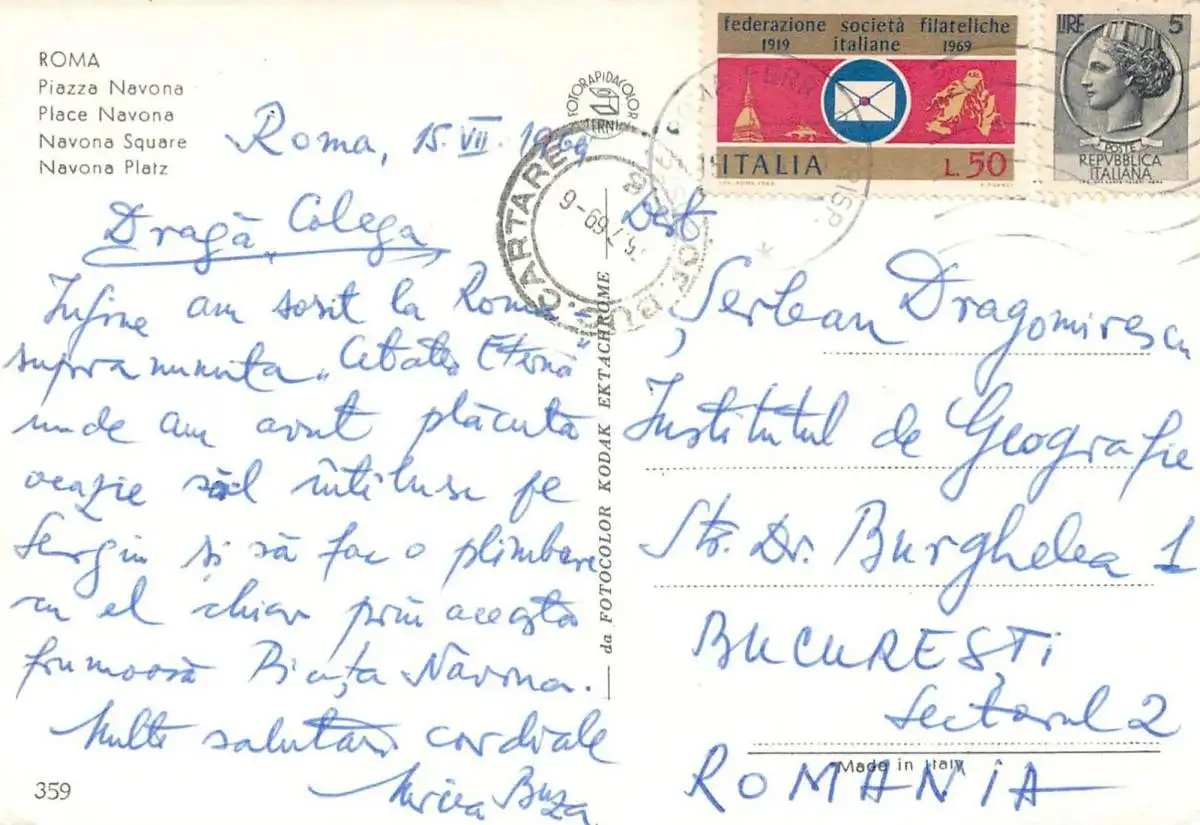 ROMA
Piazza Navona
Place Navona
Navona Square
Navona Platz
Roma, 15.VII.1969
Dragă Colega
Infine am sosit la Roma -
supranumita „Cetatea Eternă"
unde am avut plăcuta
ocazie să-l întîlnesc pe
Sergiu și să fac o plimbare
cu el chiar prin această
frumoasă Piața Năvona.
Multe salutări cordiale
Mircea Buza
359
FOTORAPIDACOLOR
TERNI
da FOTOCOLOR KODAK EKTACHROME
federazione società filateliche
1919 italiane 1969
ITALIA
L.50
LIRE 5
POSTE
REPVBBLICA
ITALIANA
CARTARE
Dest.
Șerban Dragomirescu
Institutul de Geografie
Str. Dr. Burghelea 1
BUCUREȘTI
Sectorul 2
Made in Italy
ROMANIA